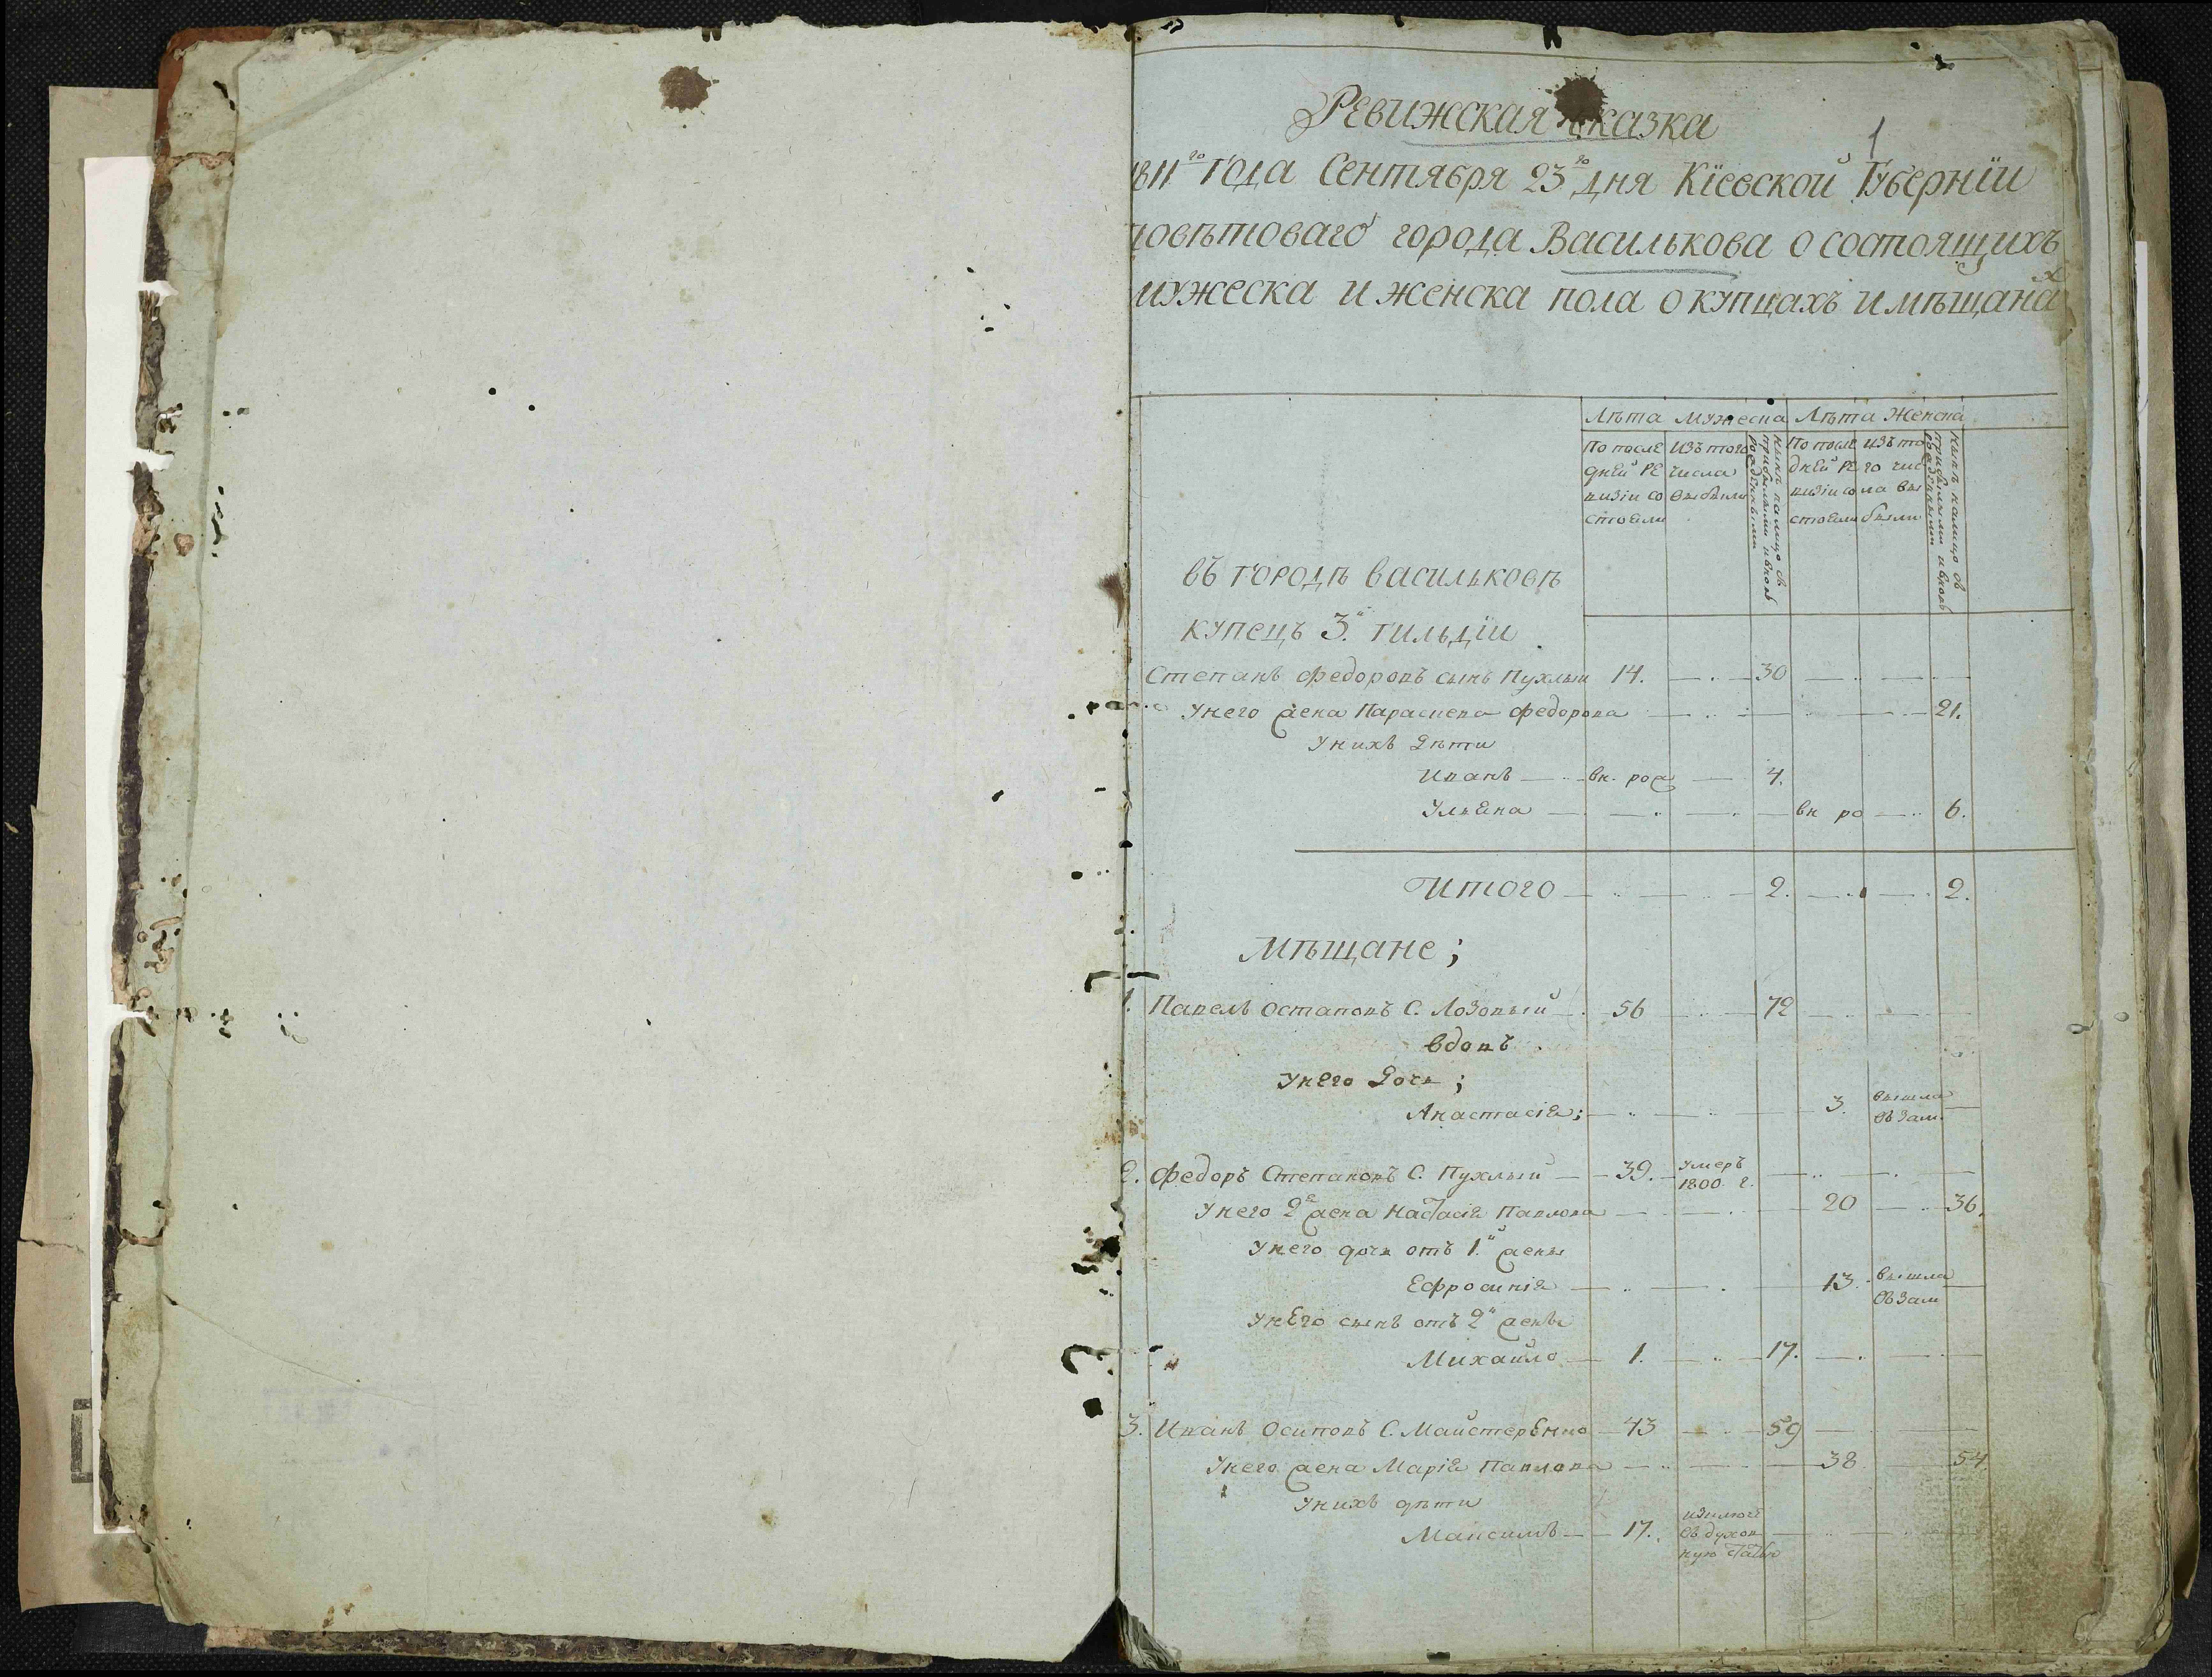 1
Ревижская сказка
1811го Года Сентября 23го дня Кіевской Губерніи
повѣтоваго города Василькова о состоящихъ
мужеска и женска пола о купцахъ и мѣщанах
Лѣта мужеска Лѣта женска
По после дней ревизіи состоели
изъ того числа выбыли
нынѣ на лицо съ прибылыми и вновь рожденными
По после дней ревизіи состоели
изъ того числа выбыли
нынѣ на лицо съ прибылыми и вновь рожденными
въ городѣ васильковѣ
купецъ 3й гильдіи
Степанъ Федоровъ сынъ Пухлый 14. 30
У него жена Параскева Федорова 21.
У нихъ дѣти
Иванъ вн. рож 4.
Ульена вн ро 6.
Итого 2. 2.
Мѣщане;
1. Павелъ Остаповъ С. Лозовый 56 72
вдовъ
У него дочь;
Анастасія; 3. вышла въ зам.
2. Федоръ Степановъ С. Пухлый 39. умеръ 1800 г.
У него 2я жена Настасія Павлова 20 36.
У него дочь отъ 1й жены
Ефросинія 13. вышла въ зам
У него сынъ отъ 2й жены
Михайло 1. 17.
3. Иванъ Осиповъ С. Майстеренко 43 59
У него жена Марія Павлова 38 54
У нихъ дѣти
Максимъ 17. изключ въ духовную статью